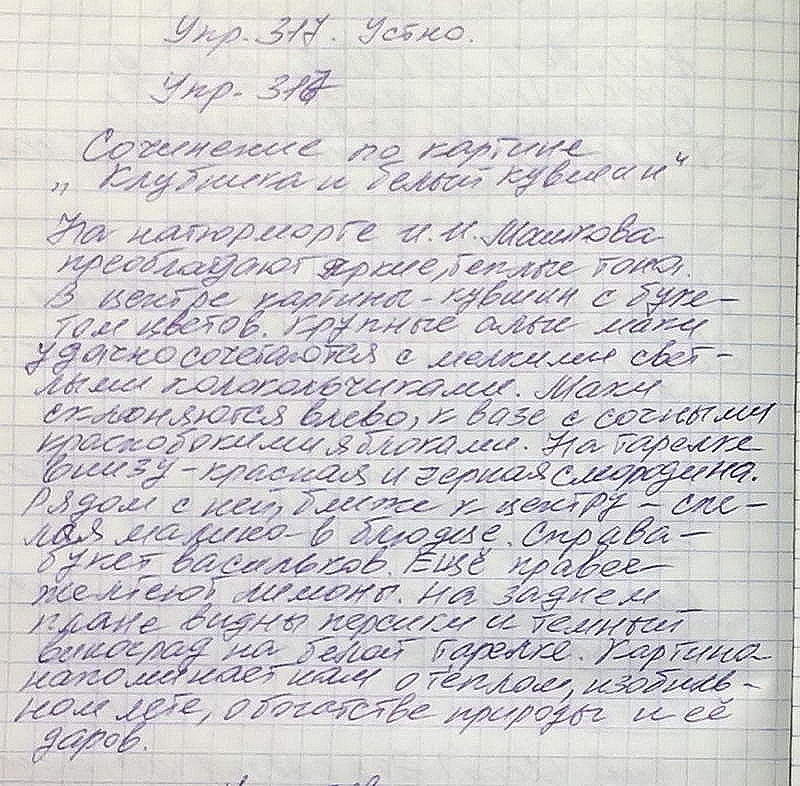 Упр. 317. Устно.
Упр. 316
Сочинение по картине
„Клубника и белый кувшин"
На натюрморте И.И. Машкова
преобладают яркие, теплые тона.
В центре картины - кувшин с буке-
том цветов. Крупные алые маки
удачно сочетаются с мелкими свет-
лыми колокольчиками. Маки
склоняются влево, к вазе с сочными
краснобокими яблоками. На тарелке
внизу - красная и черная смородина.
Рядом с ней, ближе к центру - спе-
лая малина - в блюдце. Справа -
букет васильков. Ещё правее -
желтеют лимоны. На заднем
плане видны персики и темный
виноград на белой тарелке. Картина
напоминает нам о теплом, изобиль-
ном лете, о богатстве природы и её
даров.